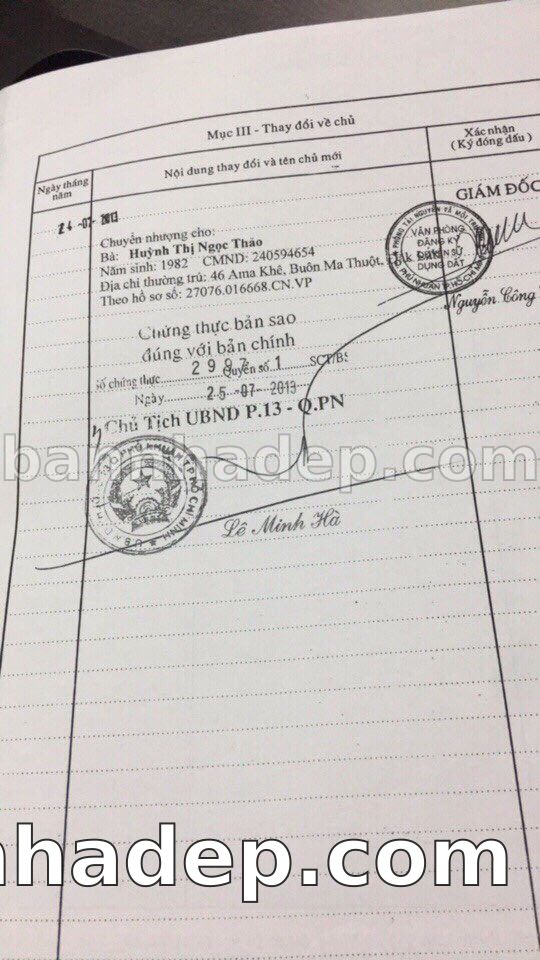 Mục III - Thay đổi về chủ
Ngày tháng năm
Nội dung thay đổi và tên chủ mới
Xác nhận
( Ký đóng dấu )
24 -07- 2013
Chuyển nhượng cho:
Bà: Huỳnh Thị Ngọc Thảo
Năm sinh: 1982 CMND: 240594654
Địa chỉ thường trú: 46 Ama Khê, Buôn Ma Thuột,
Theo hồ sơ số: 27076.016668.CN.VP
GIÁM ĐỐC
VĂN PHÒNG
ĐĂNG KÝ
QUYỀN SỬ
DỤNG ĐẤT
Nguyễn Công
Chứng thực bản sao
đúng với bản chính
Số chứng thực 2987 Quyển số 1 SCT/BS
Ngày 25 -07- 2013
Chủ Tịch UBND P.13 - Q.PN
bannhadep.com
Lê Minh Hà
nhadep.com